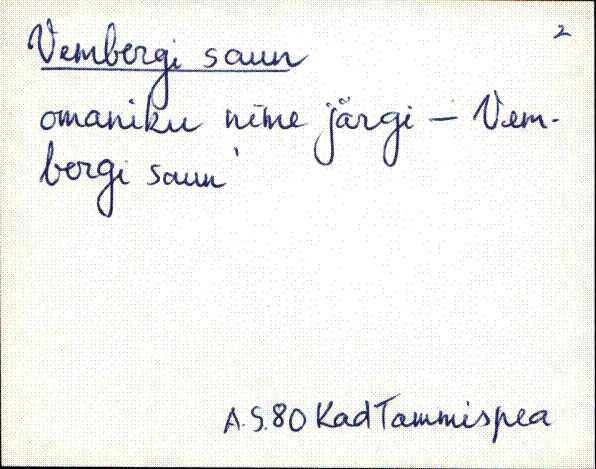 2
Vembergi saun
omaniku nime järgi – Vem-
bergi saun'
A.S.80 Kad Tammispea